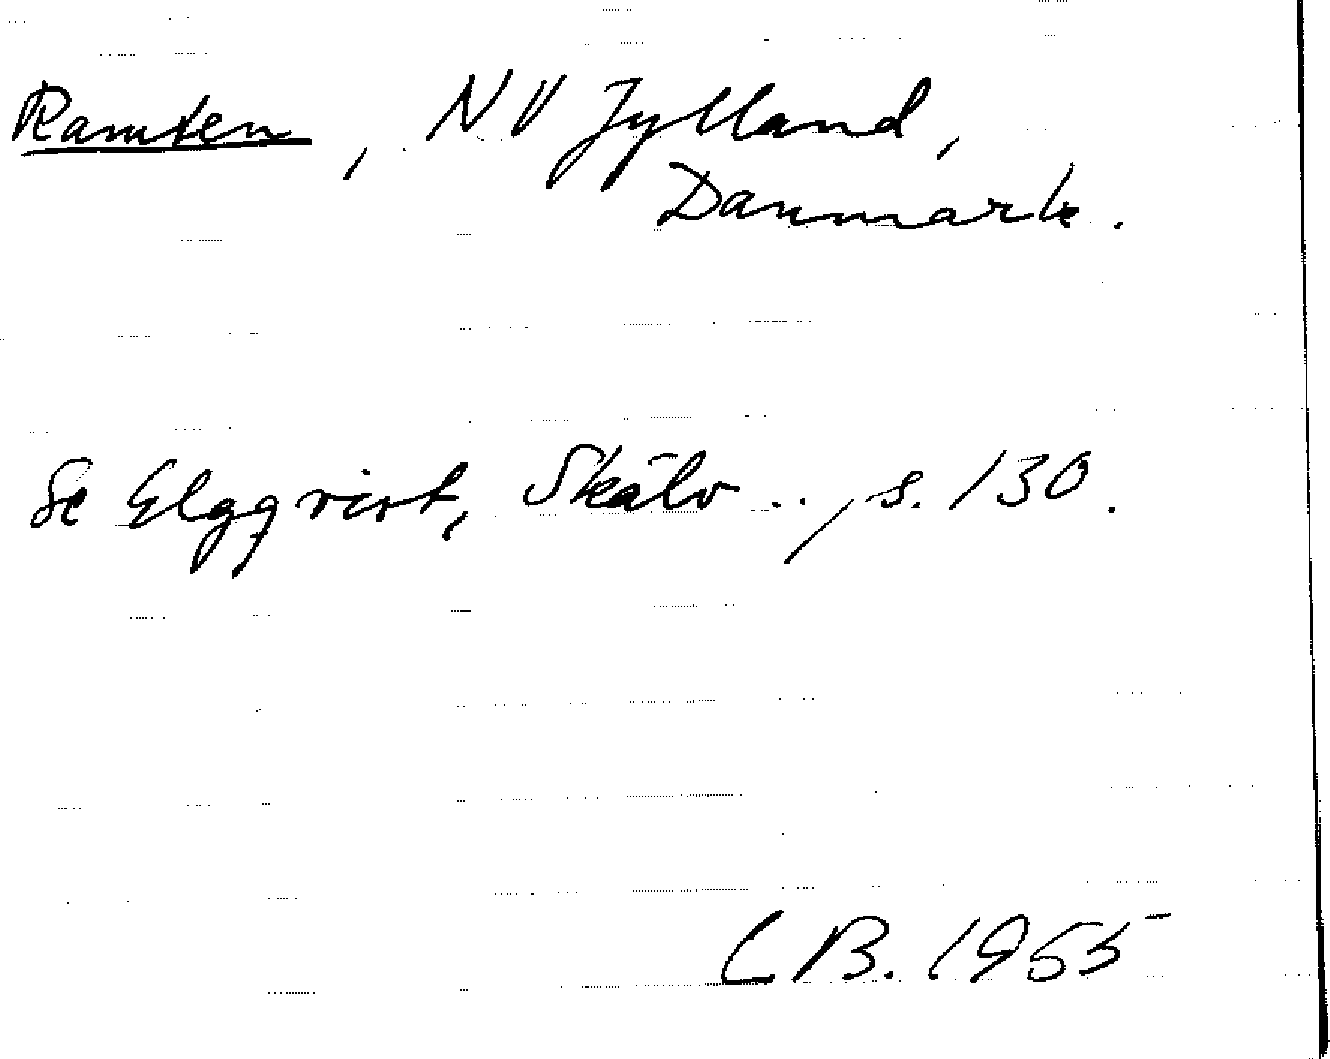 Ramten, NV Jylland,
Danmark.
Se Elgqvist, Skälv .., s. 130.
CB. 1955